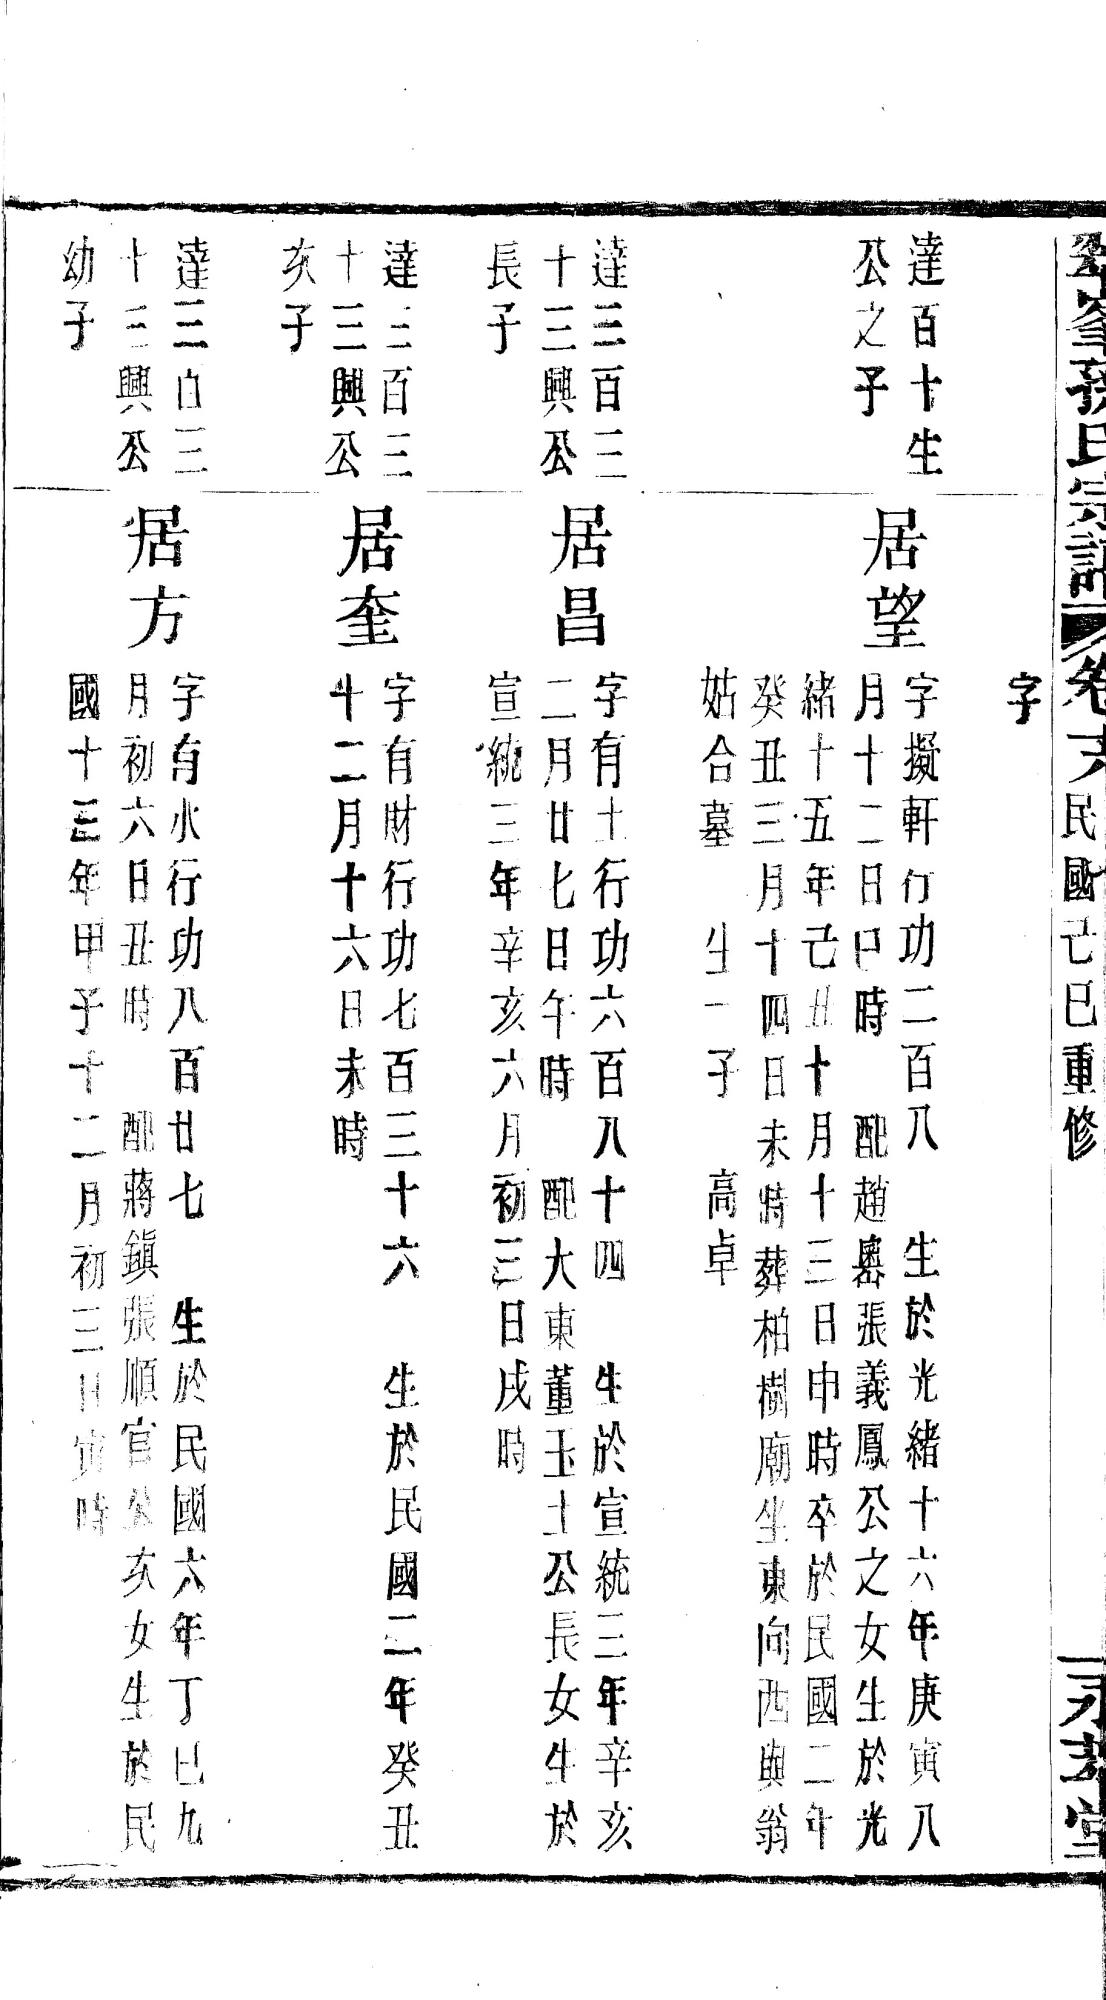 峯孫氏宗譜 卷 民國己巳重修 永 堂
字
達百十生
公之子
居望
字擬軒行功二百八 生於光緒十六年庚寅八
月十二日巳時 配趙嶴張義鳳公之女生於光
緒十五年己丑十月十三日申時卒於民國二年
癸丑三月十四日未時葬柏樹廟坐東向西與翁
姑合墓 生一子 高卓
達三百三
十三興公
長子
居昌
字有土行功六百八十四 生於宣統三年辛亥
二月廿七日午時 配大東董玉土公長女生於
宣統三年辛亥六月初三日戌時
達三百三
十三興公
次子
居奎
字有財行功七百三十六 生於民國二年癸丑
十二月十六日未時
達三百三
十三興公
幼子
居方
字有水行功八百廿七 生於民國六年丁巳九
月初六日丑時 配蔣鎮張順官公次女生於民
國十三年甲子十二月初三日寅時